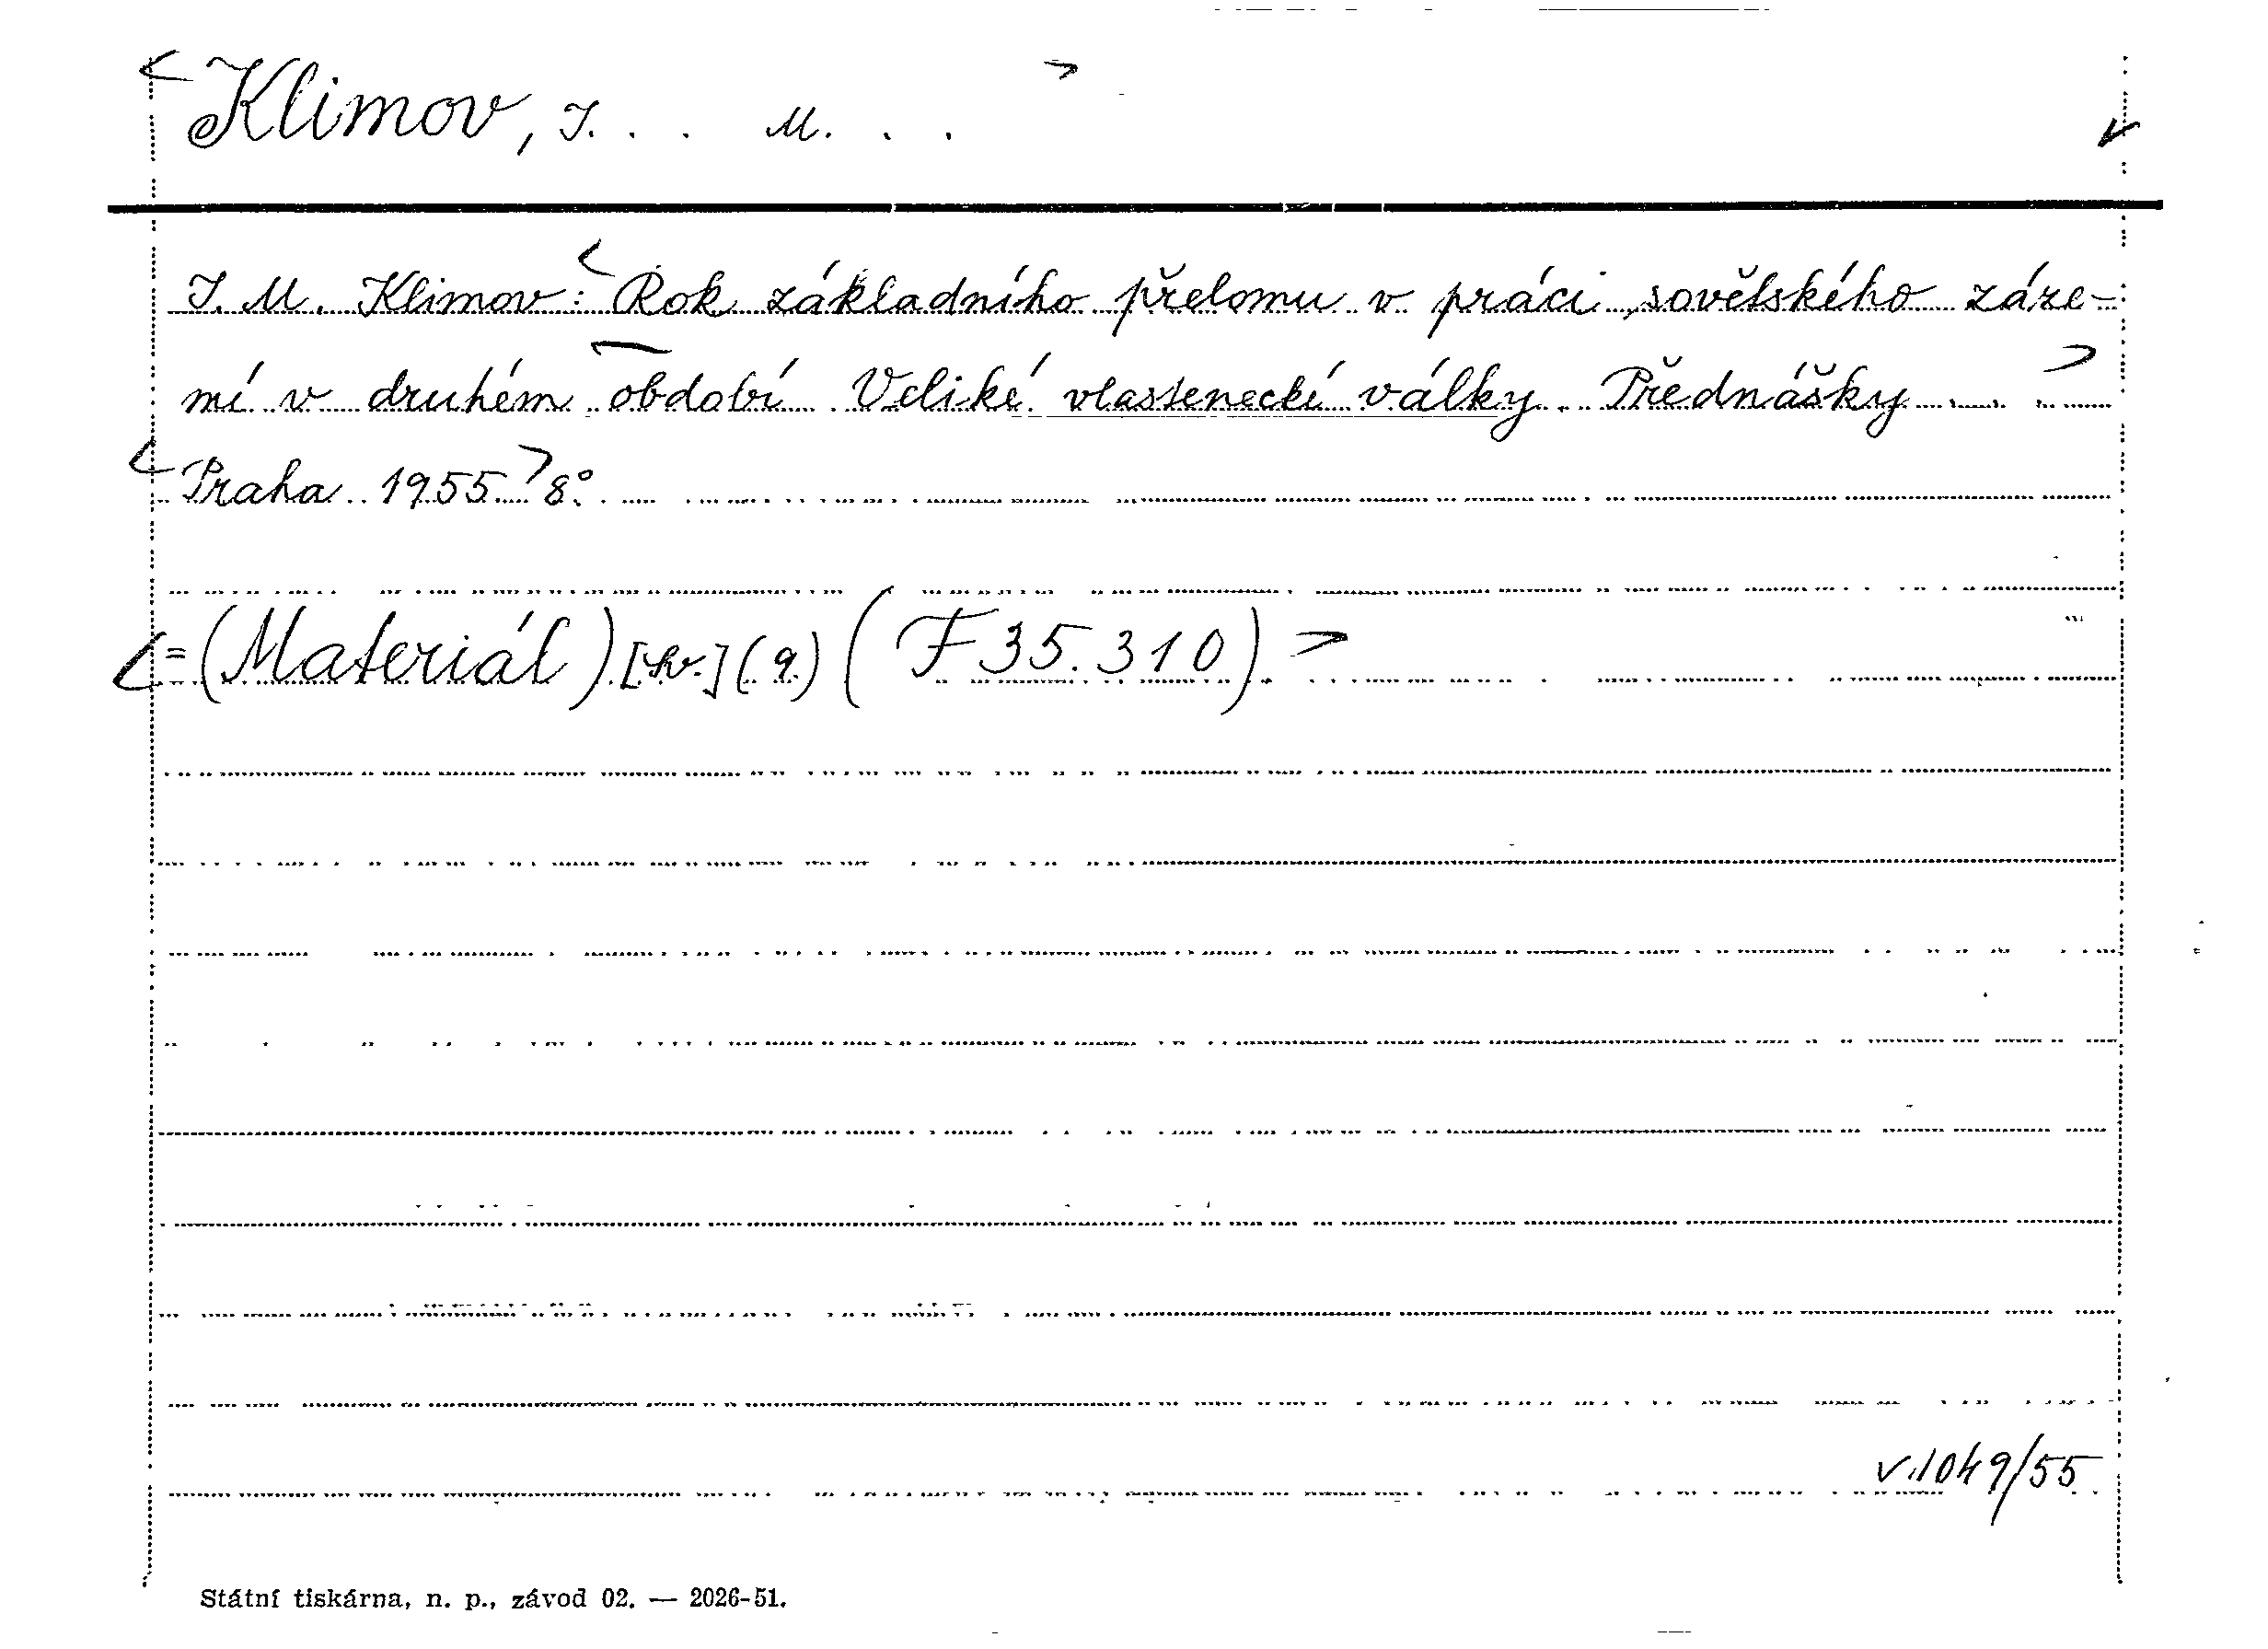 <Klimov, I. . . M. . . >
I. M. Klimov: <Rok základního přelomu v práci sovětského záze-
mí v druhém období Veliké vlastenecké války. Přednášky . . . >
<Praha 1955> 8°.
<=(Materiál) (9) (F 35.310)>
v.1049/55
Státní tiskárna, n. p., závod 02. — 2026-51.